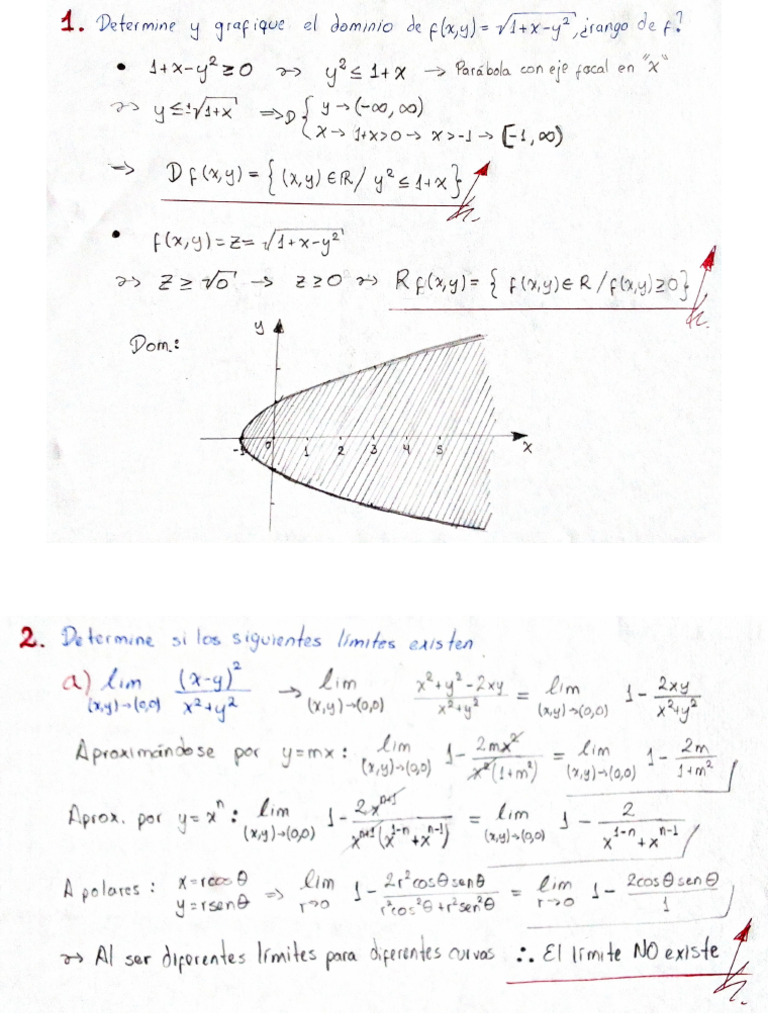 1. Determine y grafique el dominio de f(x,y) = √(1+x-y²), ¿rango de f?
• 1+x-y² ≥ 0 ~> y² ≤ 1+x → Parábola con eje focal en "x"
~> y ≤ ±√(1+x) => D { y → (-∞, ∞)
x → 1+x>0 → x>-1 → [-1, ∞)
=> D f(x,y) = { (x,y) ∈ R / y² ≤ 1+x }
• f(x,y) = z = √(1+x-y²)
~> z ≥ √0 → z ≥ 0 ~> R f(x,y) = { f(x,y) ∈ R / f(x,y) ≥ 0 }
Dom.:
y
-1 0 1 2 3 4 5 x
2. Determine si los siguientes límites existen.
a) lim (x,y)→(0,0) (x-y)² / (x²+y²) → lim (x,y)→(0,0) (x²+y²-2xy) / (x²+y²) = lim (x,y)→(0,0) 1 - 2xy / (x²+y²)
Aproximándose por y=mx: lim (x,y)→(0,0) 1 - 2mx² / (x²(1+m²)) = lim (x,y)→(0,0) 1 - 2m / (1+m²)
Aprox. por y=xⁿ: lim (x,y)→(0,0) 1 - 2xⁿ⁺¹ / (xⁿ⁺¹(x¹⁻ⁿ+xⁿ⁻¹)) = lim (x,y)→(0,0) 1 - 2 / (x¹⁻ⁿ+xⁿ⁻¹)
A polares: x=rcosθ y=rsenθ => lim r→0 1 - 2r²cosθsenθ / (r²cos²θ+r²sen²θ) = lim r→0 1 - 2cosθsenθ / 1
~> Al ser diferentes límites para diferentes curvas ∴ El límite NO existe